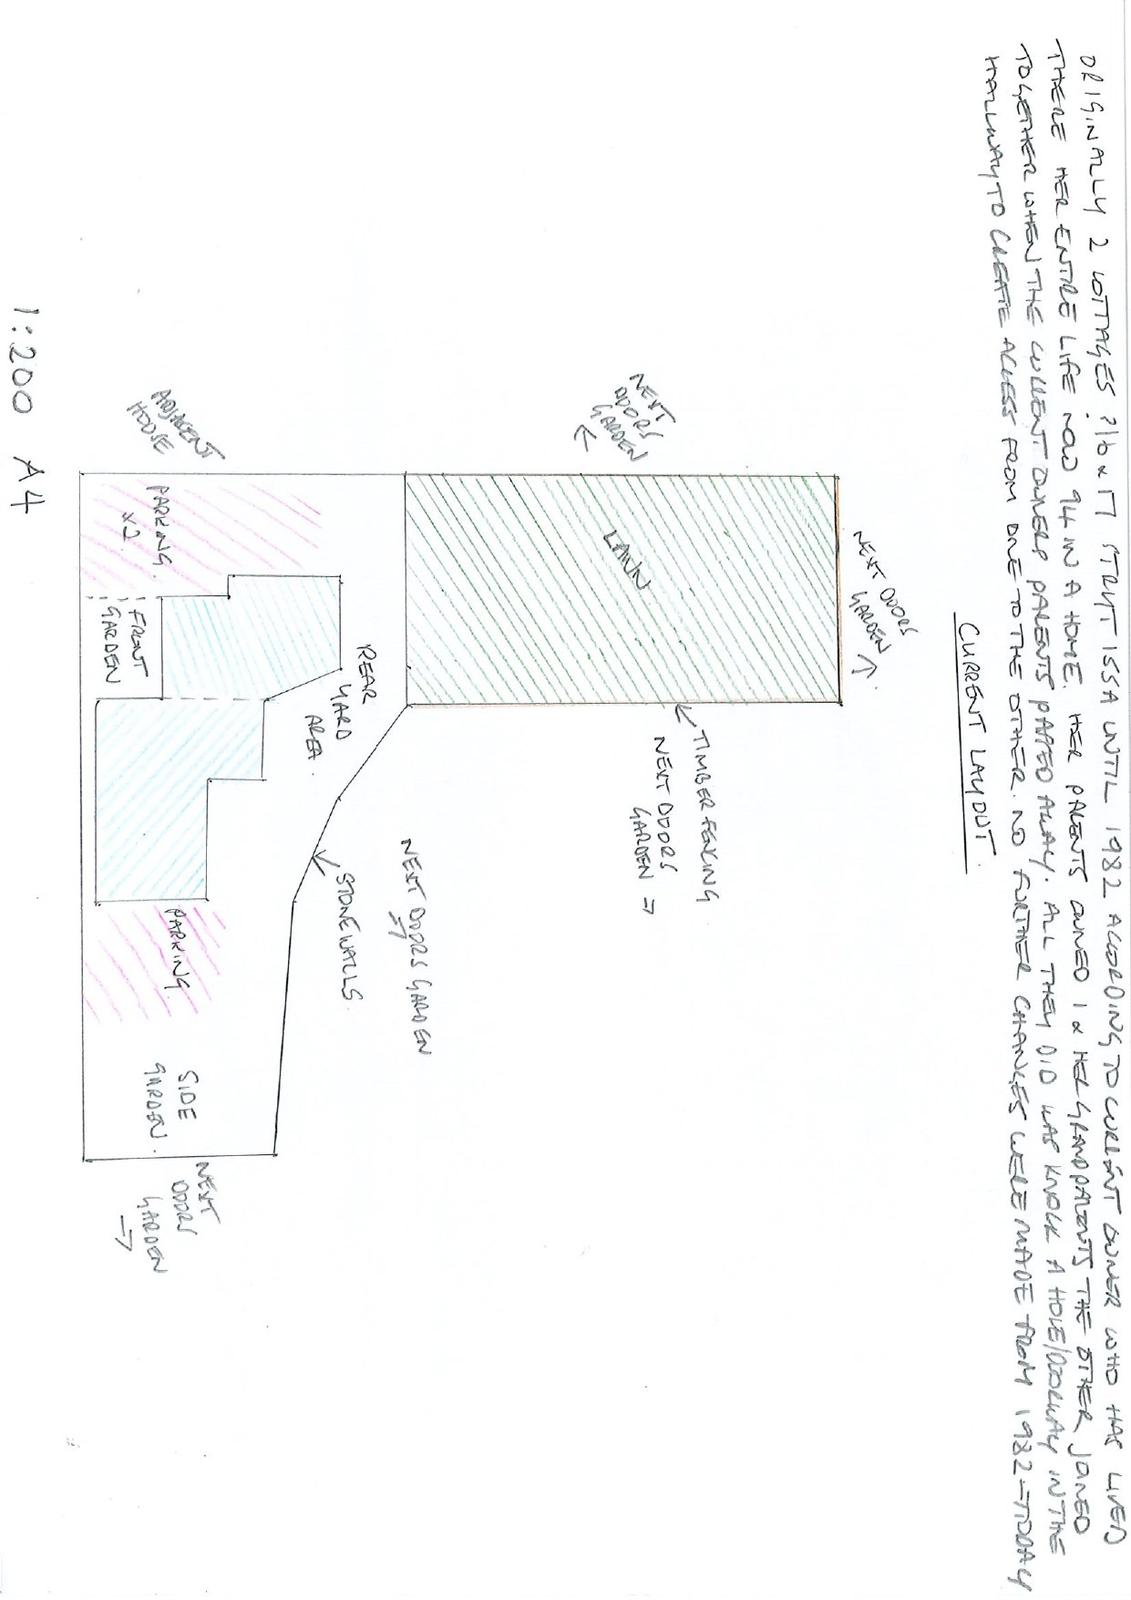 ORIGINALLY 2 COTTAGES 16 & 17 STRYT ISSA UNTIL 1982 ACCORDING TO CURRENT OWNER WHO HAS LIVED
THERE HER ENTIRE LIFE NOW 94 IN A HOME. HER PARENTS OWNED 1 & HER GRANDPARENTS THE OTHER, JOINED
TOGETHER WHEN THE CURRENT OWNERS PARENTS PASSED AWAY. ALL THEY DID WAS KNOCK A HOLE/DOORWAY IN THE
HALLWAY TO CREATE ACCESS FROM ONE TO THE OTHER. NO FURTHER CHANGES WERE MADE FROM 1982 - TODAY
CURRENT LAYOUT.
NEXT DOORS
GARDEN →
NEXT
DOORS
GARDEN
←
LAWN
TIMBER FENCING
NEXT DOORS
GARDEN →
REAR
YARD
AREA.
NEXT DOORS GARDEN
→
STONE WALLS
ADJACENT
HOUSE
PARKING
x2
FRONT
GARDEN
PARKING
SIDE
GARDEN.
NEXT
DOORS
GARDEN
→
1:200 A4